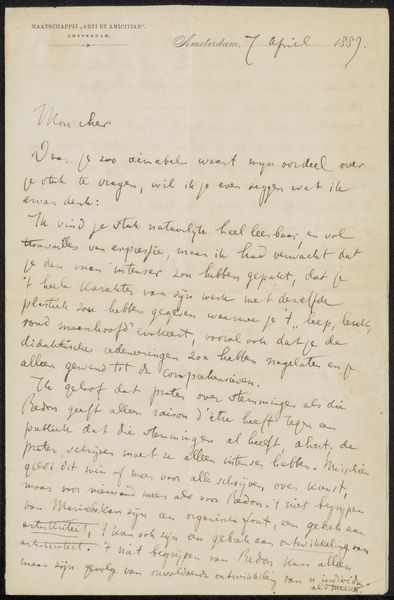 MAATSCHAPPIJ „ARTI ET AMICITIAE".
AMSTERDAM.
Amsterdam, 7 April 1889.
Mon cher
Daar je zoo aimabel waart mijn oordeel over
je stuk te vragen, wil ik je even zeggen wat ik
ervan denk:
Ik vind je stuk natuurlijk heel leesbaar, en vol
trouvailles van expressie, maar ik had verwacht dat
je den man intenser zou hebben gepakt, dat je
't heele karakter van zijn werk met dezelfde
plastiek zou hebben gegeven waarmee je 't „leep, leuk,
rond maanhoofd" evokeert, vooral ook dat je de
didaktische redeneeringen zou hebben nagelaten en je
alleen gewend tot de comprehensieven.
Ik geloof dat praten over stemmingen als die
Redon geeft alleen raison d'être heeft tegen een
publiek dat die stemmingen al heeft, ahnt, de
prater, schrijver moet ze alleen intenser hebben. Misschien
geldt dit min of meer voor alle schrijven over kunst,
maar voor niemand meer als voor Redon. 't niet begrijpen
van Maris kan zijn een organische fout, een gebrek aan
artisticiteit, 't kan ook zijn een gebrek aan ontwikkeling van
artisticiteit. 't niet begrijpen van Redon kan alleen
maar zijn gevolg van onvoldoende ontwikkeling van 'n individu
als mensch.